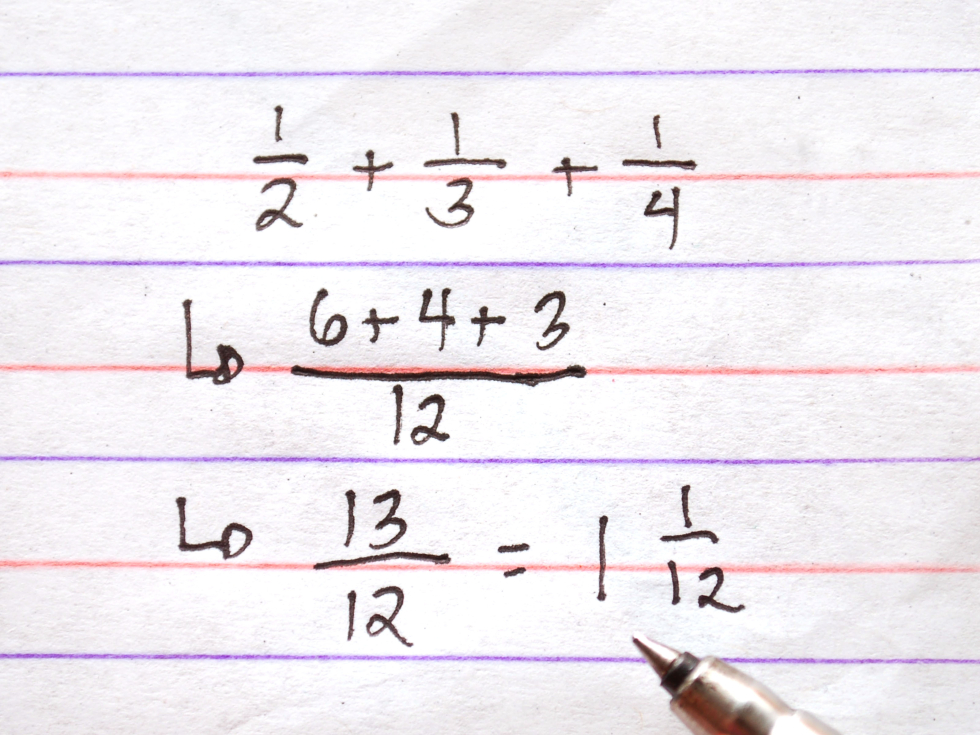 1/2 + 1/3 + 1/4
↳ (6+4+3)/12
↳ 13/12 = 1 1/12